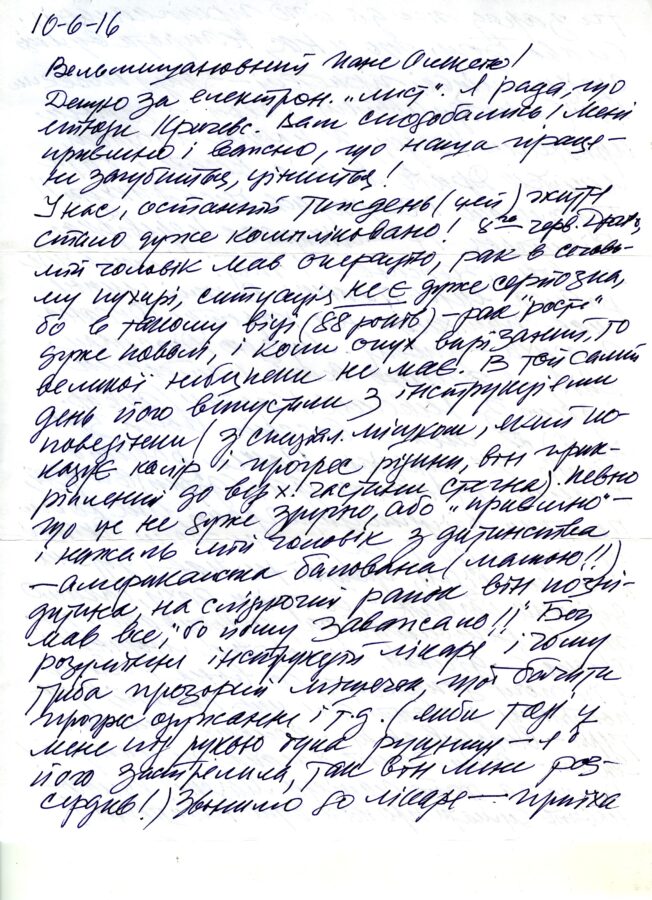 10-6-16
Вельмишановний Пане Олексо!
Дякую за електрон. „лист". Я рада, що
етюди Кричевс. Вам сподобались! Мені
приємно і важно, що наша праця –
не загубиться, ціниться!
У нас, останній тиждень (цей) життя
стало дуже компліковано! 8го черв.
мій чоловік мав операцію, рак в сечово-
му пухирі, ситуація не є дуже серйозна,
бо в такому віці (88 років) – рак "росте"
дуже поволі, і коли опух вирізаний, то
великої небезпеки не має. В той самий
день його випустили з інструкціями
поведінки (з спеціял. мішком, який по-
казує колір і прогрес рідини, він прик-
ріплений до верх. частини стегна). Певно
що це не дуже зручно, або „приємно" –
і нажаль мій чоловік з дитинства
– американська балована (мамою!!)
дитина, на слідуючий ранок він позні-
мав все, "бо йому заважало!!" Без
розуміння інструкцій лікаря і чому
треба прозорий мішечок, щоб бачити
прогрес одужання і т.д. (якби тоді у
мене під рукою була рушниця – я б
його застрелила, так він мене роз-
сердив!) Звонимо до лікаря – приїха